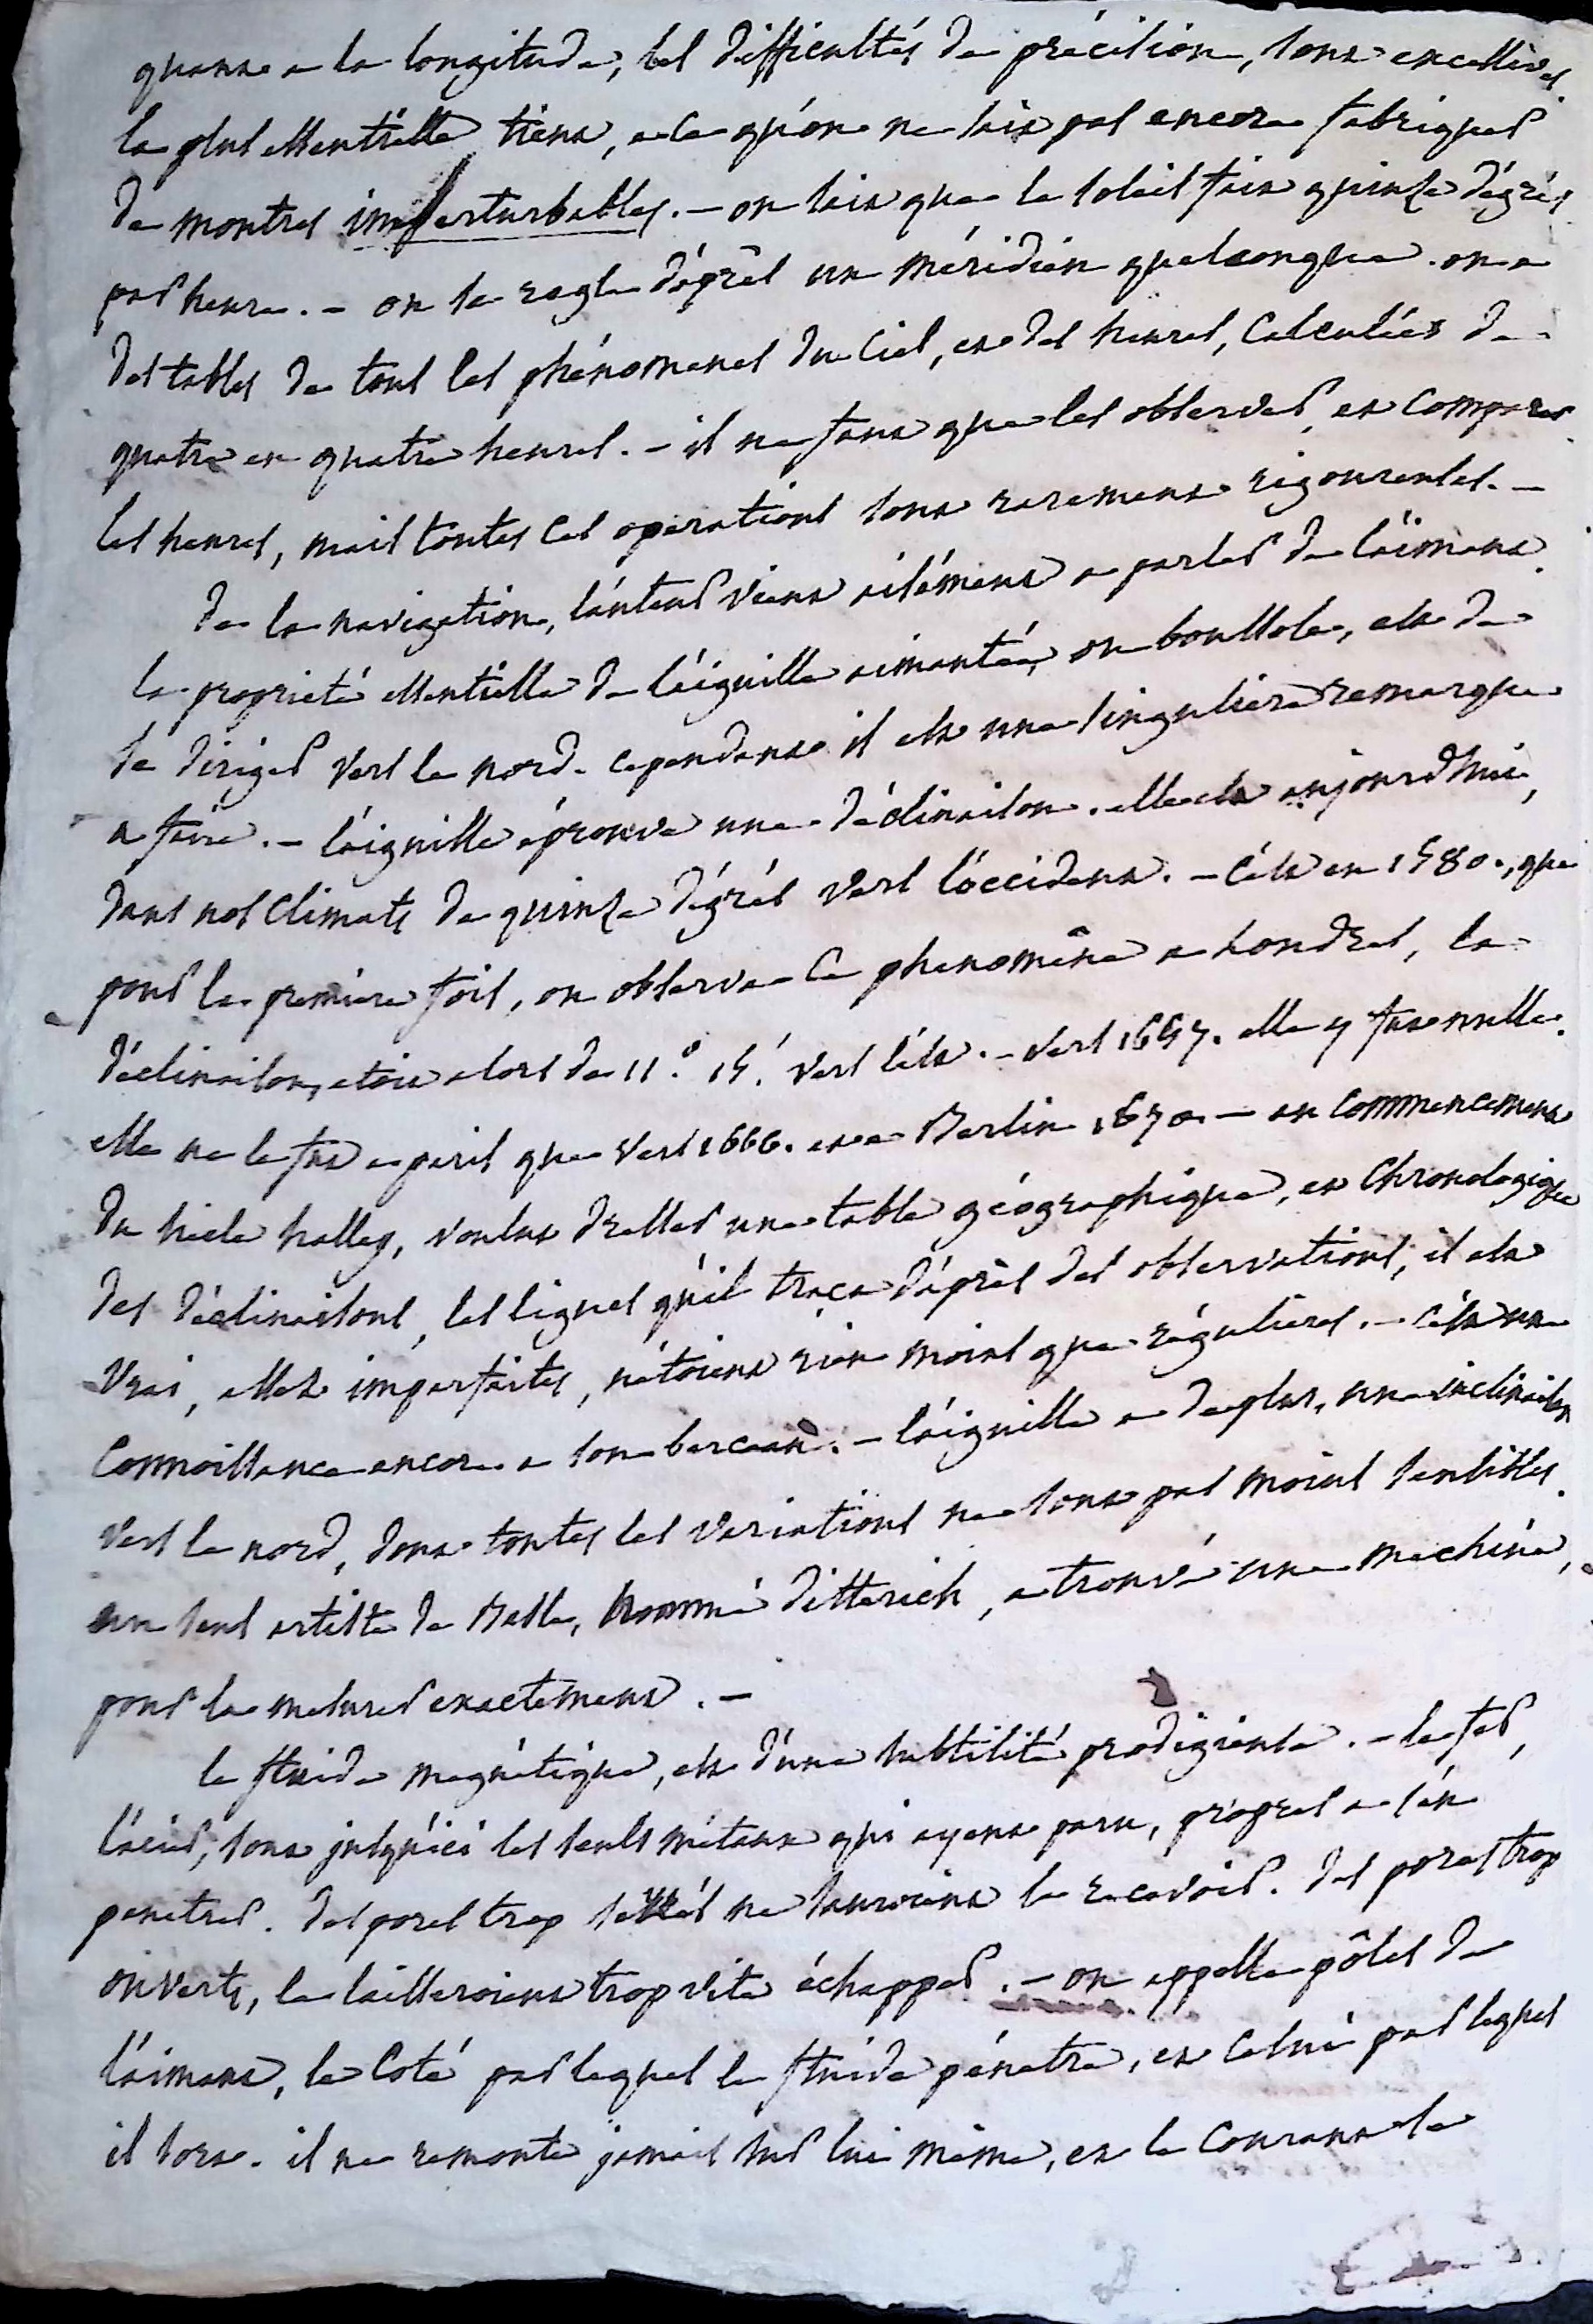 quant a la longitude, les difficultés de précision, sont excessives.
la plus essentielle tient, a ce qu'on ne sait pas encore fabriquer
de montres imperturbables. - on sait que le soleil fait quinze dégrés
par heure. - on se regle d'après un méridien quelconque. on a
des tables de tous les phénomenes du Ciel, et des heures, Calculées de
quatre en quatre heures. - il ne faut que les observer, et comparer
les heures, mais toutes ces operations sont rarement rigoureuses. -
de la navigation, l'auteur vient aisément a parler de l'aimant.
la proprieté essentielle de l'aiguille aimantée, ou boussole, est de
se diriger vers le nord. cependant il est une singuliere remarque
a faire. - l'aiguille éprouve une déclinaison. elle est aujourd'hui,
dans nos climats de quinze dégrés vers l'occident. - C'est en 1580., que
pour la premiere fois, on observa ce phenomêne a Londres, la
déclinaison, etoit alors de 11.° 15.' vers l'est. - vers 1657. elle y fut nulle.
elle ne le fut a paris que vers 1666. et a Berlin 1670. - au commencement
du siecle halley, voulut dresser une table géographique, et Chronologique
des déclinaisons, les lignes qu'il traça d'après des observations, il est
vrai, assez imparfaites, n'étoient rien moins que régulieres. - c'est une
Connoissance encore a son berceau. - l'aiguille a de plus, une inclinaison
vers le nord, dont toutes les variations ne sont pas moins sensibles.
un seul artiste de Basle, nommé ditterich, a trouvé une machine,
pour la mesurer exactement. -
le fluide magnétique, est d'une subtilité prodigieuse. - le fer,
l'acier, sont jusqu'ici les seuls métaux qui ayent paru, propres a s'en
penetrer. des pores trop serrés ne sauroient le recevoir. des pores trop
ouverts, le laisseroient trop vite échapper. - on appelle pôles de
l'aimant, le Coté par lequel le fluide pénetre, et Celui par lequel
il sort. il ne remonte jamais sur lui même, et le Courant se